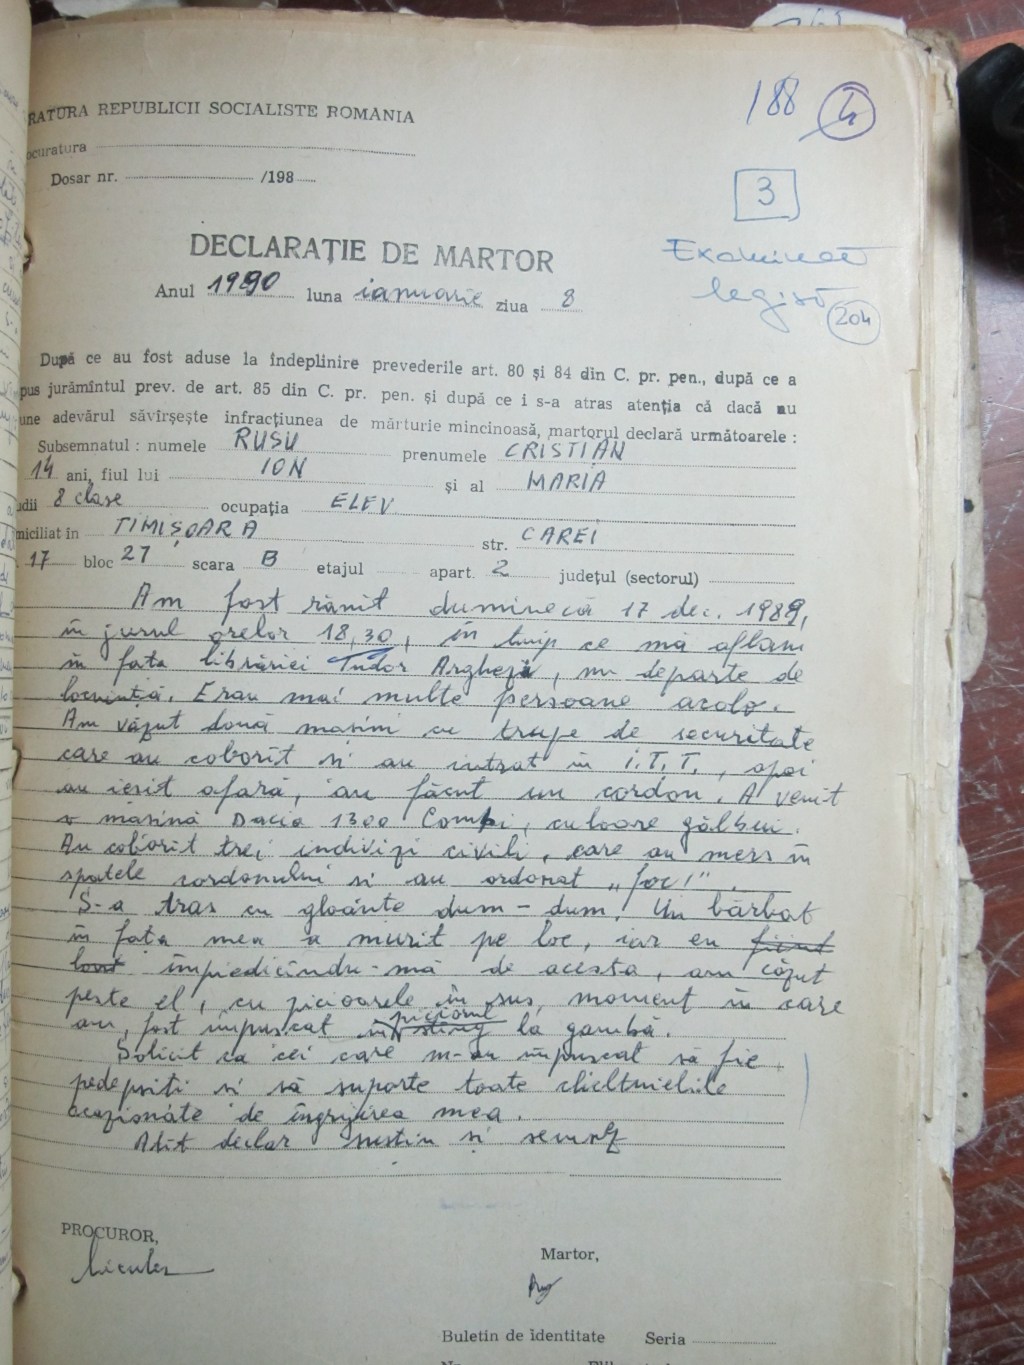 RATURA REPUBLICII SOCIALISTE ROMÂNIA
188 4
ocuratura
Dosar nr. /198
3
DECLARAŢIE DE MARTOR
Examinat
legist
204
Anul 1990 luna ianuarie ziua 8
După ce au fost aduse la îndeplinire prevederile art. 80 şi 84 din C. pr. pen., după ce a
pus jurămîntul prev. de art. 85 din C. pr. pen. şi după ce i s-a atras atenţia că dacă nu
une adevărul săvîrşeşte infracţiunea de mărturie mincinoasă, martorul declară următoarele :
Subsemnatul : numele RUSU prenumele CRISTIAN
14 ani, fiul lui ION şi al MARIA
udii 8 clase ocupaţia ELEV
miciliat în TIMIŞOARA str. CAREI
17 bloc 27 scara B etajul apart. 2 judeţul (sectorul)
Am fost rănit duminecă 17 dec. 1989,
în jurul orelor 18,30, în timp ce mă aflam
în fata librăriei Tudor Arghezi, nu departe de
locuință. Erau mai multe persoane acolo.
Am văzut două masini cu trupe de securitate
care au coborît si au intrat în I.T.T., apoi
au iesit afară, au făcut un cordon. A venit
o masină Dacia 1300 Combi, culoare gălbui.
Au coborît trei indivizi civili, care au mers în
spatele cordonului si au ordonat „foc!".
S-a tras cu gloanțe dum-dum. Un bărbat
în fața mea a murit pe loc, iar eu fiind
împiedicîndu-mă de acesta, am căzut
peste el, cu picioarele în sus, moment în care
am fost împuscat în piciorul stîng la gambă.
Solicit ca cei care m-au împuscat să fie
pedepsiti si să suporte toate cheltuielile
ocazionate de îngrijirea mea.
Atît declar sustin si semnez
PROCUROR,
Martor,
Buletin de identitate Seria